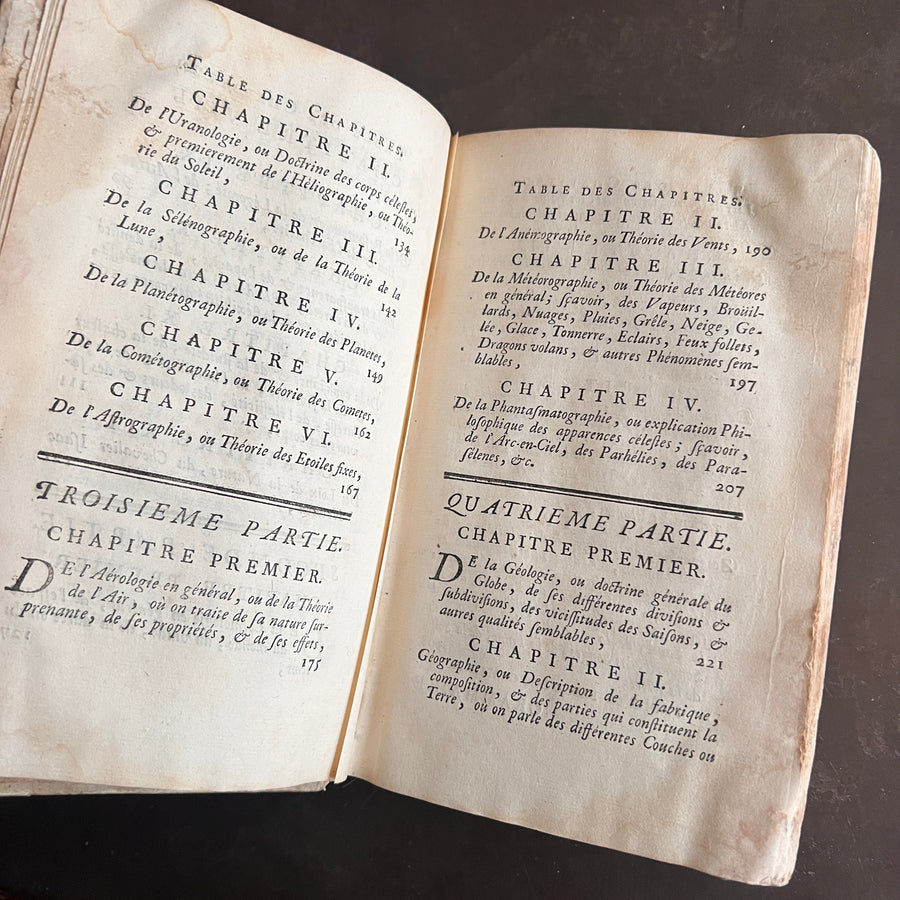 TABLE DES CHAPITRES.
CHAPITRE II.
De l'Uranologie, ou Doctrine des corps céleſtes,
& premierement de l'Héliographie, ou Théo-
rie du Soleil, 134
CHAPITRE III.
De la Sélénographie, ou de la Théorie de la
Lune, 142
CHAPITRE IV.
De la Planétographie, ou Théorie des Planetes,
149
CHAPITRE V.
De la Cométographie, ou Théorie des Cometes,
162
CHAPITRE VI.
De l'Aſtrographie, ou Théorie des Etoiles fixes,
167
TROISIEME PARTIE.
CHAPITRE PREMIER.
DE l'Aérologie en général, ou de la Théorie
de l'Air, où on traite de ſa nature ſur-
prenante, de ſes propriétés, & de ſes effets,
175
TABLE DES CHAPITRES.
CHAPITRE II.
De l'Anémographie, ou Théorie des Vents, 190
CHAPITRE III.
De la Météorographie, ou Théorie des Météores
en général; ſçavoir, des Vapeurs, Broüil-
lards, Nuages, Pluies, Grêle, Neige, Ge-
lée, Glace, Tonnerre, Eclairs, Feux follets,
Dragons volans, & autres Phénomènes ſem-
blables, 197
CHAPITRE IV.
De la Phantaſmatographie, ou explication Phi-
loſophique des apparences céleſtes; ſçavoir,
de l'Arc-en-Ciel, des Parhélies, des Para-
ſélenes, &c. 207
QUATRIEME PARTIE.
CHAPITRE PREMIER.
DE la Géologie, ou doctrine générale du
Globe, de ſes différentes diviſions &
ſubdiviſions, des viciſſitudes des Saiſons, &
autres qualités ſemblables, 221
CHAPITRE II.
Géographie, ou Deſcription de la fabrique,
compoſition, & des parties qui conſtituent la
Terre, où on parle des différentes Couches ou